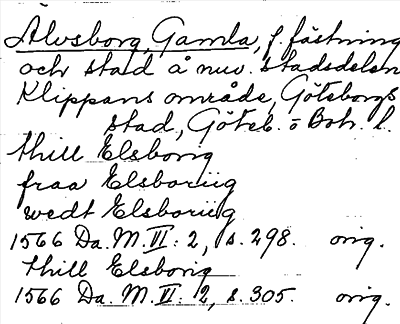 Älvsborg, Gamla, f. fästning
och stad å nuv. stadsdelen
Klippans område, Göteborgs
stad, Göteb. o Boh. l.
thill Elsborig
fraa Elsboriig
wedt Elsboriig
1566 Da. M. II: 2, s. 298. orig.
thill Elsborig
1566 Da. M. II: 2, s. 305. orig.